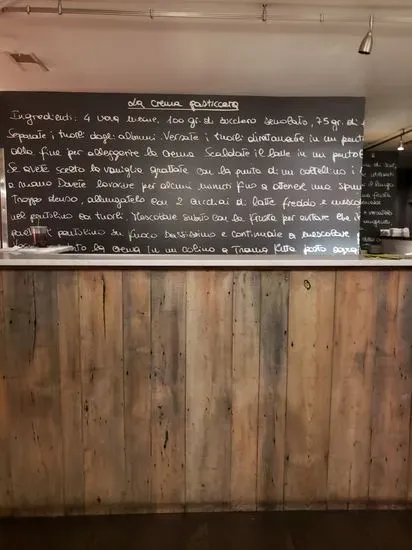 La crema pasticcera
Ingredienti: 4 uova medie, 100 gr. di zucchero semolato, 75 gr. di
Separate i tuorli dagli albumi. Versate i tuorli direttamente in un pent
alla fine per alleggerire la crema. Scaldate il latte in un pentol
Se avete scelto la vaniglia grattate con la punta di un coltellino i
a mano. Dovete lavorare per alcuni minuti fino a ottenere una spum
Troppo denso, allungatelo con 2 cucchiai di latte freddo e mescol
nel pentolino coi tuorli. Mescolate subito con la frusta per evitare che i
pentolino su fuoco bassissimo e continuate a mescolare
la crema in un colino a Trama fitta posto sopra